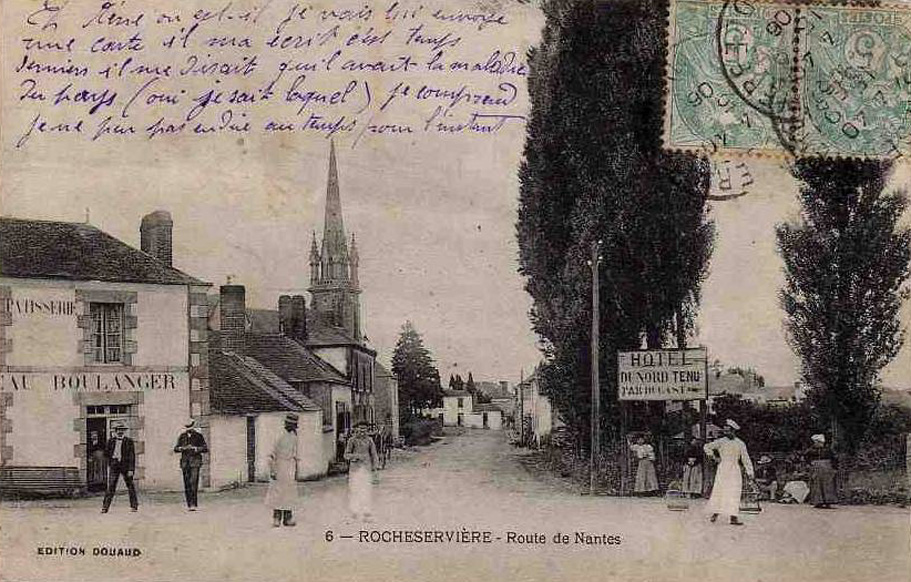 Et René où est-il je vais lui envoye
une carte il m'a écrit c'est temps
derniers il me disait qu'il avait la maladie
du pays (oui je sait laquel) je comprend
je ne pur pas endire au temps pour l'instant
PATISSERIE
AU BOULANGER
HOTEL
DU NORD TENU
PAR
6 — ROCHESERVIÈRE - Route de Nantes
EDITION DOUAUD